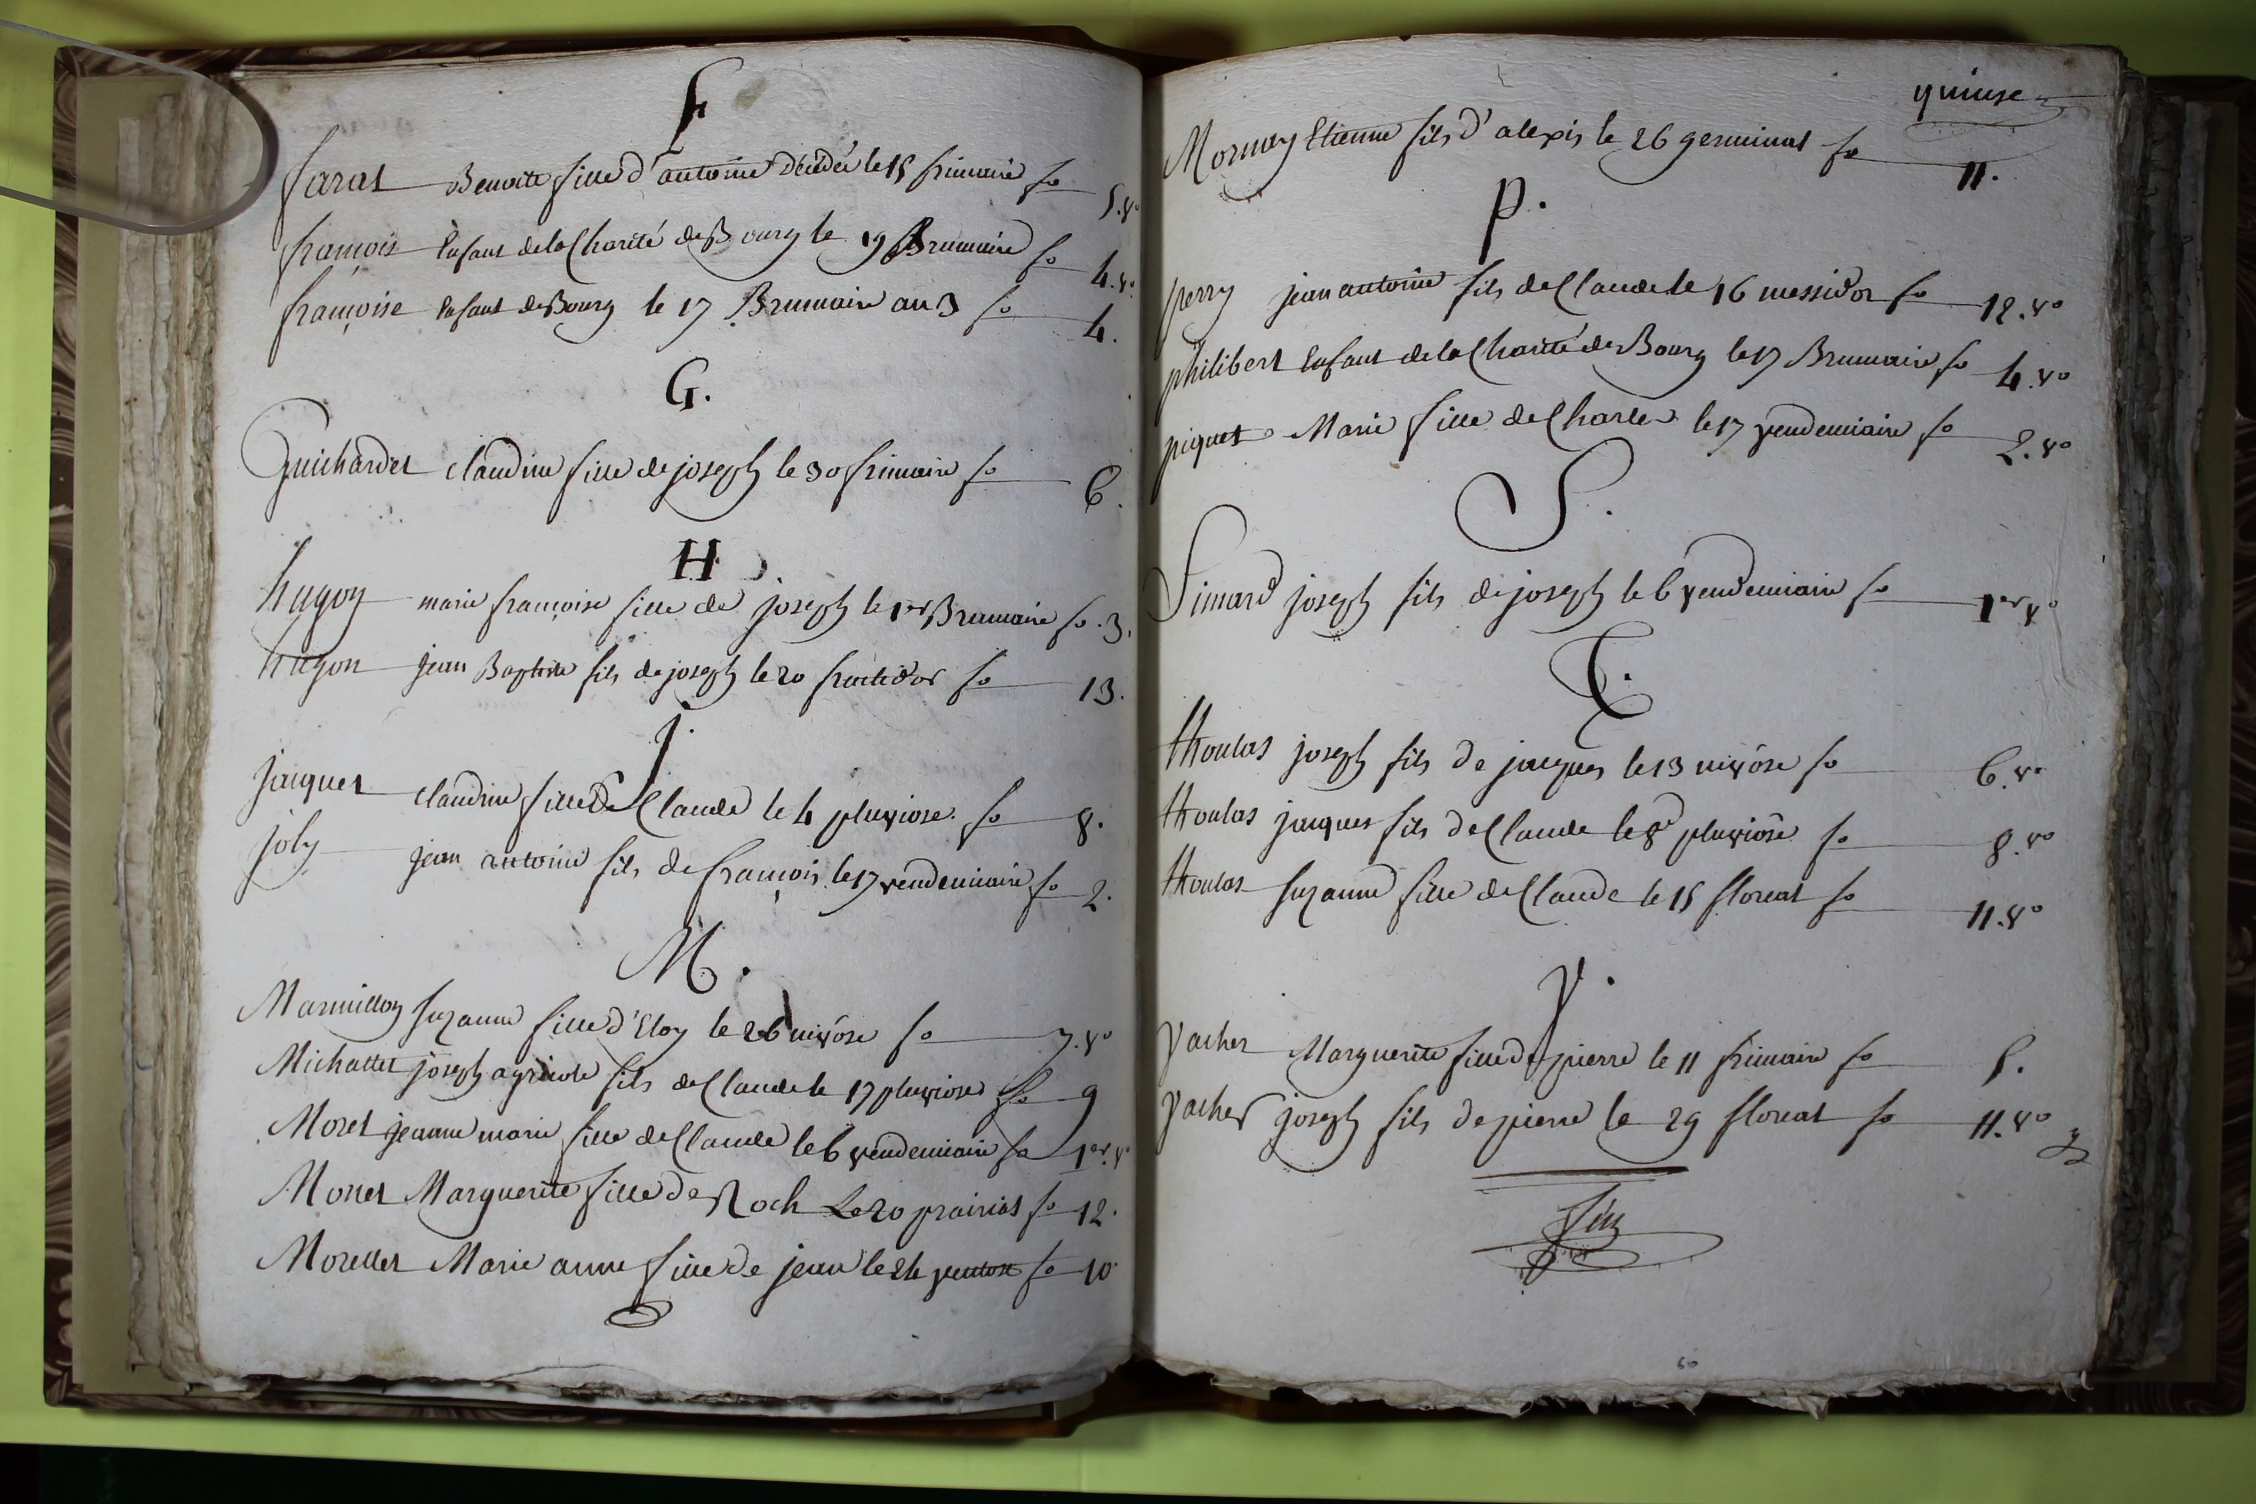 F
farat Benoite fille d'antoine décédée le 15 frimaire fo 5.vo
françois Enfant de la Charité de Bourg le 19 Brumaire fo 4.vo
françoise Enfant de Bourg le 17 Brumaire an 3 fo 4.
G.
Guichardet claudine fille de joseph le 30 frimaire fo 6.
H
hugon marie françoise fille de joseph le 1er Brumaire fo. 3.
hugon jean Baptiste fils de joseph le 20 fructidor fo 13.
J.
jacquet claudine fille de Claude le 4 pluviose. fo 8.
joly jean antoine fils de françois le 17 vendemiaire fo 2.
M.
Marmillon suzanne fille d'Eloy le 26 nivôse fo 7.vo
Michallet joseph agricole fils de Claude le 17 pluviose fo 9
Moret jeanne marie fille de Claude le 6 vendemiaire fo 1er.vo
Morret Marguerite fille de Roch Le 20 prairial fo 12.
Morellet Marie anne fille de jean le 24 ventose fo 10
quinze
Mornay Etienne fils d'alexis le 26 germinal fo 11.
p.
perry jean antoine fils de Claude le 16 messidor fo 12.vo
philibert Enfant de la Charité de Bourg le 17 Brumaire fo 4.vo
piquet Marie fille de Charles le 17 vendemiaire fo 2.vo
S.
Simard joseph fils de joseph le 6 vendemiaire fo 1er vo
T.
thoulas joseph fils de jacques le 13 nivôse fo 6.vo
thoulas jacques fils de Claude le 8 pluviôse fo 8.vo
thoulas suzanne fille de Claude le 15 floreal fo 11.vo
V.
Vacher Marguerite fille de pierre le 11 frimaire fo 5.
Vacher joseph fils de pierre le 29 floreal fo 11.vo
fin
60